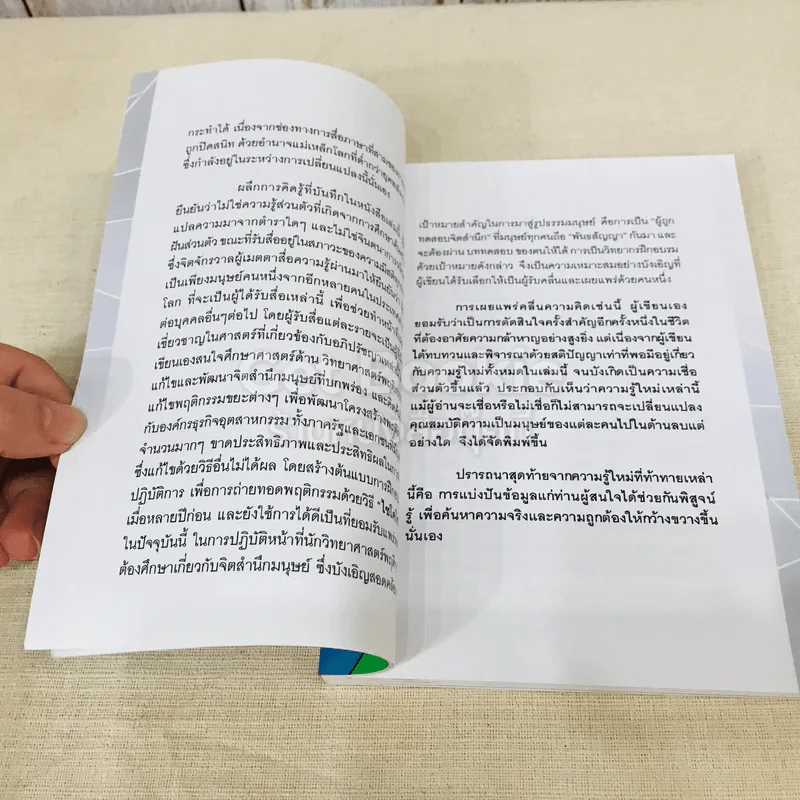 กระทำได้ เนื่องจากช่องทางการสื่อภาษาที่สามของ
ถูกปิดสนิท ด้วยอำนาจแม่เหล็กโลกที่ต่ำกว่ายุค
ซึ่งกำลังอยู่ในระหว่างการเปลี่ยนแปลงนี้นั่นเอง
ผลึกการคิดรู้ที่บันทึกในหนังสือเล่มนี้
ยืนยันว่าไม่ใช่ความรู้ส่วนตัวที่เกิดจากการศึกษา
แปลความมาจากตำราใดๆ และไม่ใช่จินตนาการ
ฝันส่วนตัว ขณะที่รับสื่ออยู่ในสภาวะของความมีสติ
ซึ่งจิตจักรวาลผู้เมตตาสื่อความรู้ผ่านมาให้ยืนยันว่า
เป็นเพียงมนุษย์คนหนึ่งจากอีกหลายคนในประเทศ
โลก ที่จะเป็นผู้ได้รับสื่อเหล่านี้ เพื่อช่วยทำหน้าที่
ต่อบุคคลอื่นๆต่อไป โดยผู้รับสื่อแต่ละรายจะเป็นผู้
เชี่ยวชาญในศาสตร์ที่เกี่ยวข้องกับอภิปรัชญาเหล่านี้
เขียนเองสนใจศึกษาศาสตร์ด้าน วิทยาศาสตร์พฤติ
แก้ไขและพัฒนาจิตสำนึกมนุษย์ที่บกพร่อง และคิดค้น
แก้ไขพฤติกรรมขยะต่างๆ เพื่อพัฒนาโครงสร้างพฤติ
กับองค์กรธุรกิจอุตสาหกรรม ทั้งภาครัฐและเอกชน
จำนวนมากๆ ขาดประสิทธิภาพและประสิทธิผลในการ
ซึ่งแก้ไขด้วยวิธีอื่นไม่ได้ผล โดยสร้างต้นแบบการฝึก
ปฏิบัติการ เพื่อการถ่ายทอดพฤติกรรมด้วยวิธี
เมื่อหลายปีก่อน และยังใช้การได้ดีเป็นที่ยอมรับแพร่
ในปัจจุบันนี้ ในการปฏิบัติหน้าที่นักวิทยาศาสตร์พฤติ
ต้องศึกษาเกี่ยวกับจิตสำนึกมนุษย์ ซึ่งบังเอิญสอดคล้อง
เป้าหมายสำคัญในการมาสู่รูปธรรมมนุษย์ คือการเป็น "ผู้ถูก
ทดสอบจิตสำนึก" ที่มนุษย์ทุกคนถือ "พันธสัญญา" กันมา และ
จะต้องผ่าน บททดสอบ ของตนให้ได้ การเป็นวิทยากรฝึกอบรม
ด้วยเป้าหมายดังกล่าว จึงเป็นความเหมาะสมอย่างบังเอิญที่
ผู้เขียนได้รับเลือกให้เป็นผู้รับคลื่นและเผยแพร่ด้วยคนหนึ่ง
การเผยแพร่คลื่นความคิดเช่นนี้ ผู้เขียนเอง
ยอมรับว่าเป็นการตัดสินใจครั้งสำคัญอีกครั้งหนึ่งในชีวิต
ที่ต้องอาศัยความกล้าหาญอย่างสูงยิ่ง แต่เนื่องจากผู้เขียน
ได้ทบทวนและพิจารณาด้วยสติปัญญาเท่าที่พอมีอยู่เกี่ยว
กับความรู้ใหม่ทั้งหมดในเล่มนี้ จนบังเกิดเป็นความเชื่อ
ส่วนตัวขึ้นแล้ว ประกอบกับเห็นว่าความรู้ใหม่เหล่านี้
แม้ผู้อ่านจะเชื่อหรือไม่เชื่อก็ไม่สามารถจะเปลี่ยนแปลง
คุณสมบัติความเป็นมนุษย์ของแต่ละคนไปในด้านลบแต่
อย่างใด จึงได้จัดพิมพ์ขึ้น
ปรารถนาสุดท้ายจากความรู้ใหม่ที่ท้าทายเหล่า
นี้คือ การแบ่งปันข้อมูลแก่ท่านผู้สนใจได้ช่วยกันพิสูจน์
รู้ เพื่อค้นหาความจริงและความถูกต้องให้กว้างขวางขึ้น
นั่นเอง